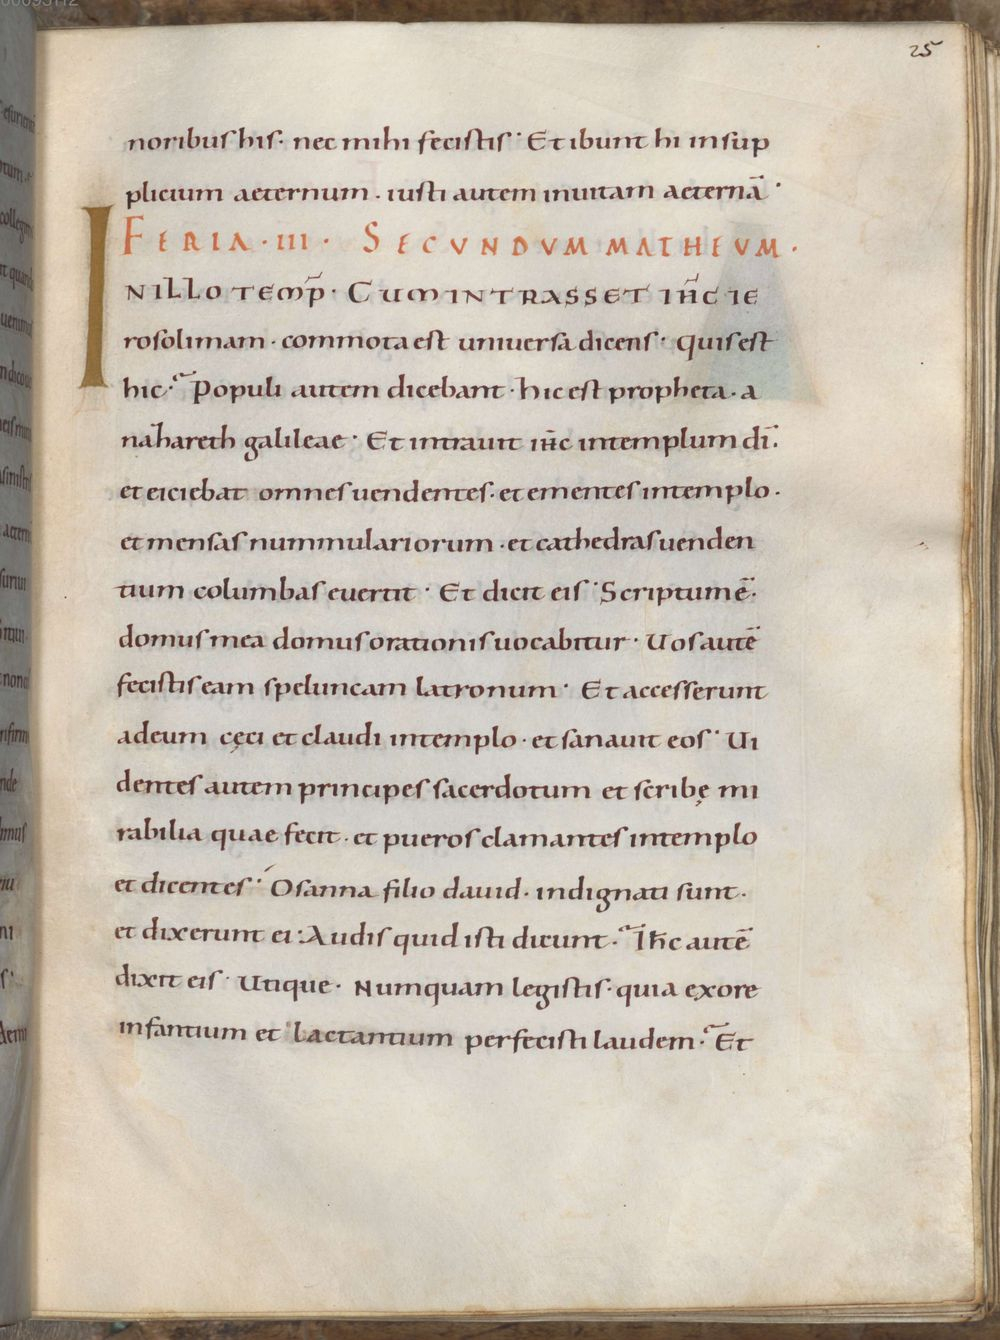 25
noribus his· nec mihi fecistis· Et ibunt hi insup
plicium aeternum · iusti autem inuitam aeternā·
FERIA · III · SECUNDUM MATHEUM·
INILLO TEMP̄· CUM INTRASSET IH̄C IE
rosolimam · commota est universa dicens· quis est
hic· Populi autem dicebant· hic est propheta · a
nahareth galileae · Et intrauit ih̄c intemplum dī·
et eiciebat omnes uendentes· et ementes intemplo·
et mensas nummulariorum · et cathedras uenden
tium columbas euertit · Et dicit eis· Scriptum ē·
domus mea domus orationis uocabitur· Uos autē
fecistis eam speluncam latronum· Et accesserunt
adeum cęci et claudi intemplo · et sanauit eos· Ui
dentes autem principes sacerdotum et scribę mi
rabilia quae fecit · et pueros clamantes intemplo
et dicentes· Osanna filio dauid · indignati sunt·
et dixerunt ei· Audis quid isti dicunt· Ih̄c autē
dixit eis· Utique· Numquam legistis· quia exore
infantium et lactantium perfecisti laudem· Et